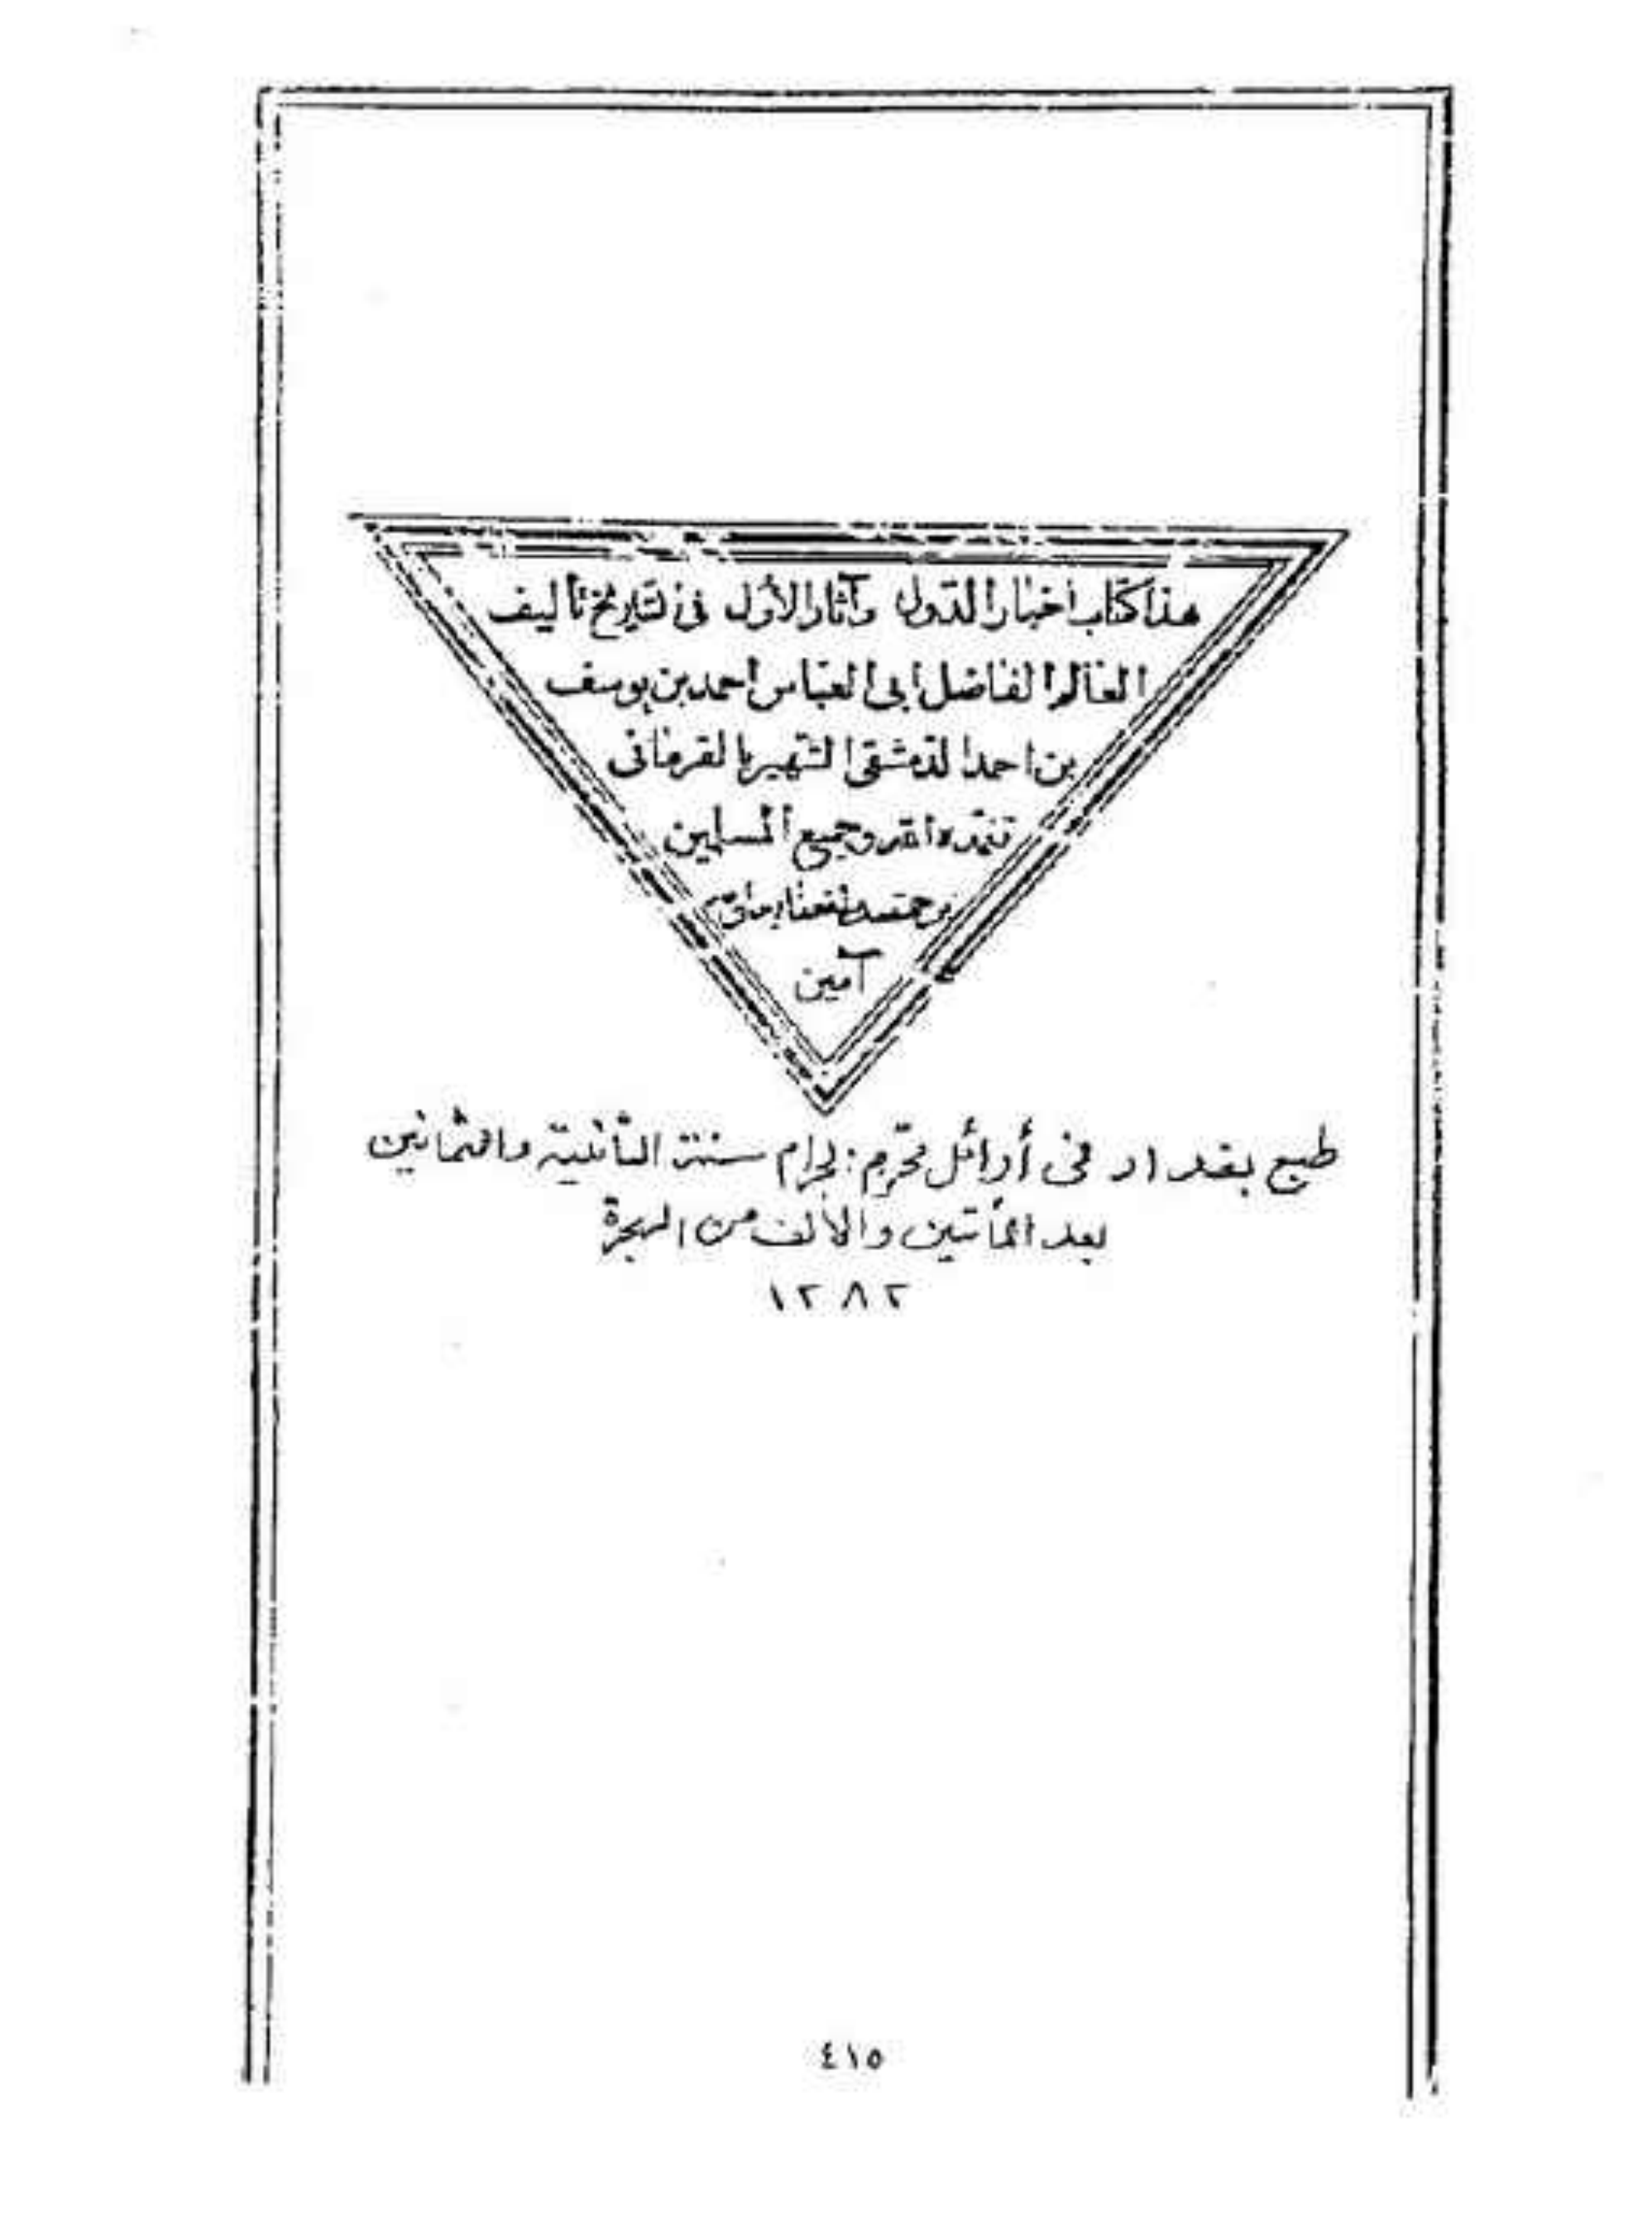 هذا كتاب أخبار الدول وآثار الأول في التاريخ تأليف
العالم الفاضل ابى العباس احمد بن يوسف
بن احمد الدمشقى الشهير بالقرمانى
تغمده الله وجميع المسلمين
برحمته ونفعنا به
آمين
طبع بغداد فى أوائل محرم الحرام سنة الثانية والثمانين
بعد المأتين والألف من الهجرة
١٢٨٢
٤١٥